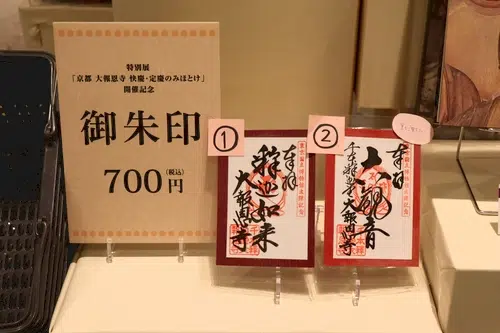 特別展
「京都 大報恩寺 快慶・定慶のみほとけ」
開催記念
御朱印
700円
(税込)
①
奉拝
釈迦如来
大報恩寺
②
奉拝
六観音
千本釈迦堂大報恩寺